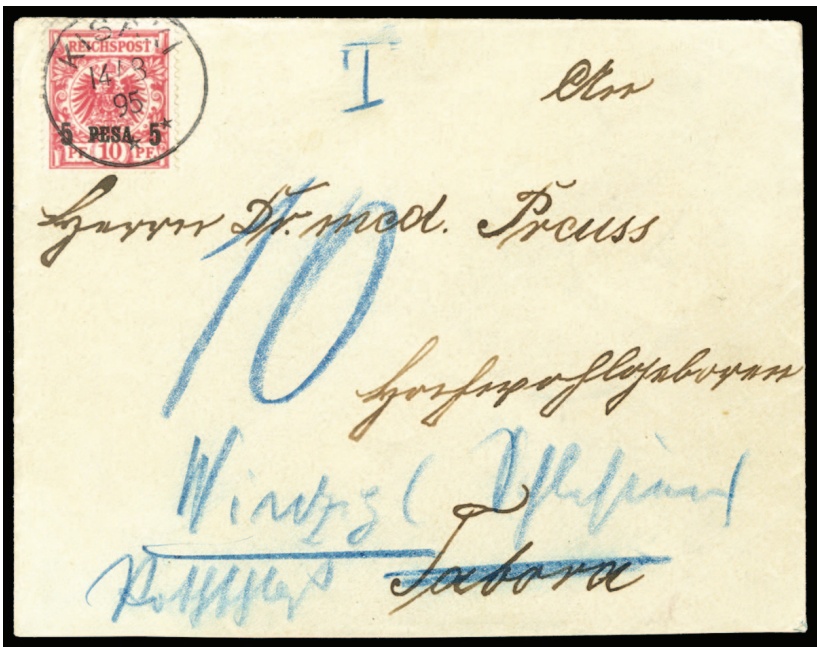 REICHSPOST
KISAKI
14 / 3
95
5 PESA 5
PF 10 PF
T
An
Herrn Dr. med. Preuss
10
Hochwohlgeboren
Winzig (Schlesien)
Tabora